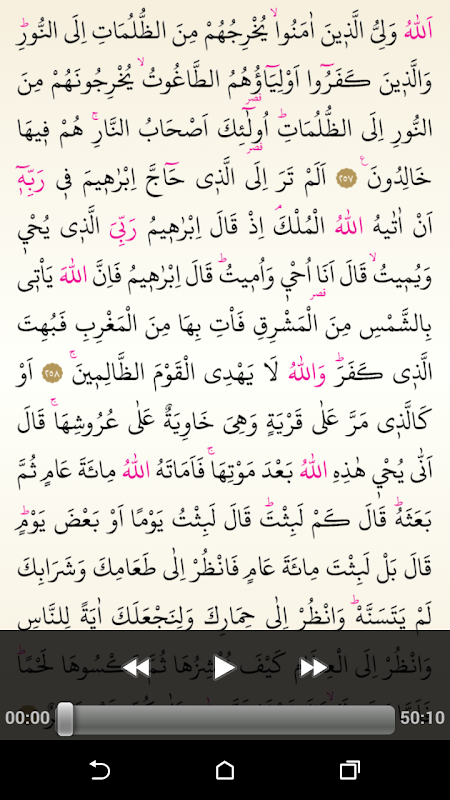 اَللّٰهُ وَلِيُّ الَّذٖينَ اٰمَنُواۙ يُخْرِجُهُمْ مِنَ الظُّلُمَاتِ اِلَى النُّورِؕ
وَالَّذٖينَ كَفَرُٓوا اَوْلِيَٓاؤُ۬هُمُ الطَّاغُوتُۙ يُخْرِجُونَهُمْ مِنَ
النُّورِ اِلَى الظُّلُمَاتِؕ اُو۬لٰٓئِكَ اَصْحَابُ النَّارِۚ هُمْ فٖيهَا
خَالِدُونَࣖ ﴿٢٥٧﴾ اَلَمْ تَرَ اِلَى الَّذٖى حَٓاجَّ اِبْرٰهٖيمَ فٖى رَبِّهٖٓ
اَنْ اٰتٰيهُ اللّٰهُ الْمُلْكَۘ اِذْ قَالَ اِبْرٰهٖيمُ رَبِّيَ الَّذٖى يُحْيٖ
وَيُمٖيتُۙ قَالَ اَنَا۬ اُحْيٖ وَاُمٖيتُؕ قَالَ اِبْرٰهٖيمُ فَاِنَّ اللّٰهَ يَاْتٖى
بِالشَّمْسِ مِنَ الْمَشْرِقِ فَاْتِ بِهَا مِنَ الْمَغْرِبِ فَبُهِتَ
الَّذٖى كَفَرَؕ وَاللّٰهُ لَا يَهْدِى الْقَوْمَ الظَّالِمٖينَۚ ﴿٢٥٨﴾ اَوْ
كَالَّذٖى مَرَّ عَلٰى قَرْيَةٍ وَهِىَ خَاوِيَةٌ عَلٰى عُرُوشِهَاۚ قَالَ
اَنّٰى يُحْيٖ هٰذِهِ اللّٰهُ بَعْدَ مَوْتِهَاۚ فَاَمَاتَهُ اللّٰهُ مِائَةَ عَامٍ ثُمَّ
بَعَثَهُؕ قَالَ كَمْ لَبِثْتَؕ قَالَ لَبِثْتُ يَوْمًا اَوْ بَعْضَ يَوْمٍؕ
قَالَ بَلْ لَبِثْتَ مِائَةَ عَامٍ فَانْظُرْ اِلٰى طَعَامِكَ وَشَرَابِكَ
لَمْ يَتَسَنَّهْۚ وَانْظُرْ اِلٰى حِمَارِكَ وَلِنَجْعَلَكَ اٰيَةً لِلنَّاسِ
وَانْظُرْ اِلَى الْعِظَامِ كَيْفَ نُنْشِزُهَا ثُمَّ نَكْسُوهَا لَحْمًاؕ
00:00 50:10